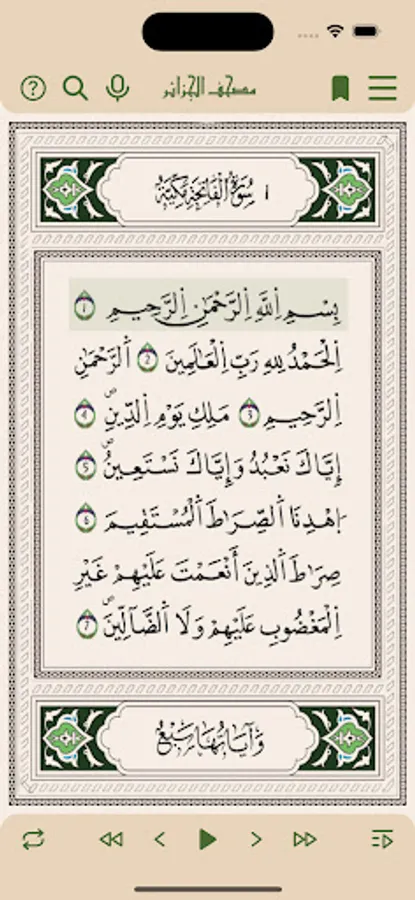 مصحف الجزائر
١ سُورَةُ الْفَاتِحَةِ مَكِّيَّةٌ
بِسْمِ اِللَّهِ اِلرَّحْمَٰنِ اِلرَّحِيمِ 1
اِلْحَمْدُ لِلهِ رَبِّ اِلْعَالَمِينَ 2 اَلرَّحْمَٰنِ
اِلرَّحِيمِ 3 مَلِكِ يَوْمِ اِلدِّينِ 4
إِيَّاكَ نَعْبُدُ وَإِيَّاكَ نَسْتَعِينُ 5
اِهْدِنَا اَلصِّرَاطَ اَلْمُسْتَقِيمَ 6
صِرَاطَ اَلذِينَ أَنْعَمْتَ عَلَيْهِمْ غَيْرِ
اِلْمَغْضُوبِ عَلَيْهِمْ وَلَا اَلضَّآلِّينَ 7
وَآيَاتُهَا سَبْعٌ